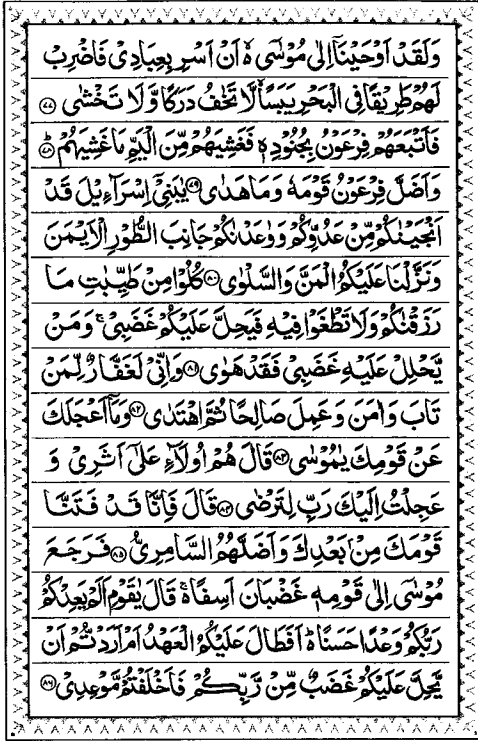 وَلَقَدْ اَوْحَيْنَآ اِلٰى مُوْسٰٓى ەۙ اَنْ اَسْرِ بِعِبَادِىْ فَاضْرِبْ
لَهُمْ طَرِيْقًا فِى الْبَحْرِ يَبَسًا ۙ لَّا تَخٰفُ دَرَكًا وَّ لَا تَخْشٰى ۷۷
فَاَتْبَعَهُمْ فِرْعَوْنُ بِجُنُوْدِهٖ فَغَشِيَهُمْ مِّنَ الْيَمِّ مَا غَشِيَهُمْ ؕ ۷۸
وَ اَضَلَّ فِرْعَوْنُ قَوْمَهٗ وَ مَا هَدٰى ۷۹ يٰبَنِىْٓ اِسْرَآءِيْلَ قَدْ
اَنْجَيْنٰكُمْ مِّنْ عَدُوِّكُمْ وَ وٰعَدْنٰكُمْ جَانِبَ الطُّوْرِ الْاَيْمَنَ
وَ نَزَّلْنَا عَلَيْكُمُ الْمَنَّ وَ السَّلْوٰى ۸۰ كُلُوْا مِنْ طَيِّبٰتِ مَا
رَزَقْنٰكُمْ وَ لَا تَطْغَوْا فِيْهِ فَيَحِلَّ عَلَيْكُمْ غَضَبِىْ ۚ وَ مَنْ
يَّحْلِلْ عَلَيْهِ غَضَبِىْ فَقَدْ هَوٰى ۸۱ وَ اِنِّىْ لَغَفَّارٌ لِّمَنْ
تَابَ وَ اٰمَنَ وَ عَمِلَ صَالِحًا ثُمَّ اهْتَدٰى ۸۲ وَ مَآ اَعْجَلَكَ
عَنْ قَوْمِكَ يٰمُوْسٰى ۸۳ قَالَ هُمْ اُولَآءِ عَلٰٓى اَثَرِىْ وَ
عَجِلْتُ اِلَيْكَ رَبِّ لِتَرْضٰى ۸۴ قَالَ فَاِنَّا قَدْ فَتَنَّا
قَوْمَكَ مِنْ بَعْدِكَ وَ اَضَلَّهُمُ السَّامِرِىُّ ۸۵ فَرَجَعَ
مُوْسٰٓى اِلٰى قَوْمِهٖ غَضْبَانَ اَسِفًا ەۚ قَالَ يٰقَوْمِ اَلَمْ يَعِدْكُمْ
رَبُّكُمْ وَعْدًا حَسَنًا ەؕ اَفَطَالَ عَلَيْكُمُ الْعَهْدُ اَمْ اَرَدْتُّمْ اَنْ
يَّحِلَّ عَلَيْكُمْ غَضَبٌ مِّنْ رَّبِّكُمْ فَاَخْلَفْتُمْ مَّوْعِدِىْ ۸۶